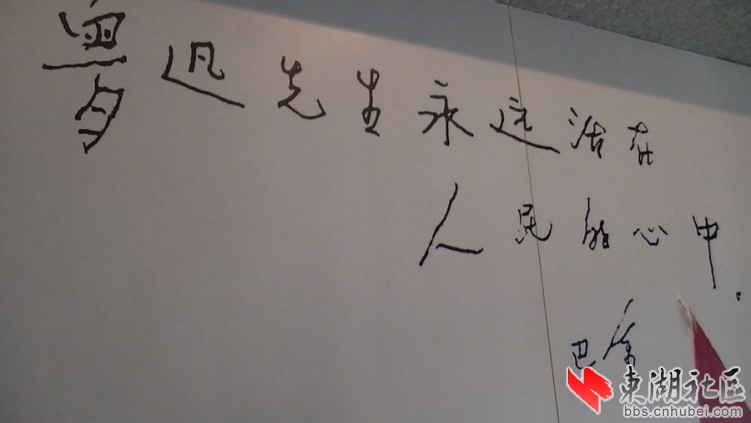 鲁迅先生永远活在
人民的心中.
巴金
東湖社区
bbs.cnhubei.com